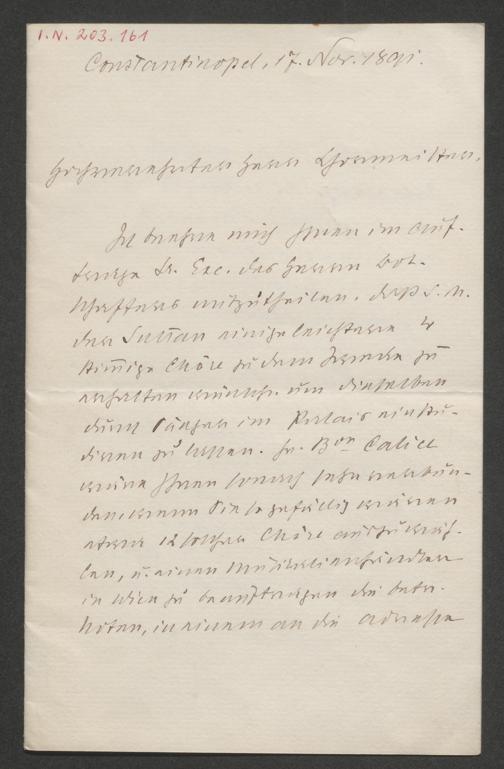 I.N. 203.161
Constantinopel, 17. Nov. 1891.
Hochverehrter Herr Chormeister,
Ich beehre mich Ihnen im Auf-
trage Sr. Exc. des Herrn Bot-
schafters mitzutheilen, daß S. M.
der Sultan einige leichtere 4
stimige Chöre zu dem Zwecke zu
erhalten wünscht, um dieselben
durch Sänger im Palais einstu-
dieren zu lassen. Hr. Bon Calice
wäre Ihnen sonach sehr verbun-
den, wenn Sie so gefällig wären
etwa 12 solcher Chöre auszuwäh-
len, u. einen Musikalienhändler
in Wien zu beauftragen die betr.
Noten, in einem an die Adresse